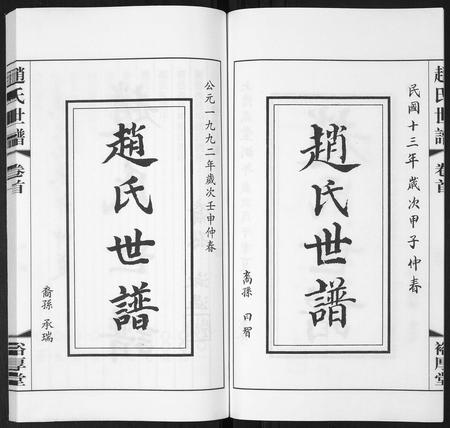 趙氏世譜
卷首
裕厚堂
民國十三年歲次甲子仲春
趙氏世譜
裔孫 日智
公元一九九二年歲次壬申仲春
趙氏世譜
裔孫 承瑞
趙氏世譜
卷首
裕厚堂